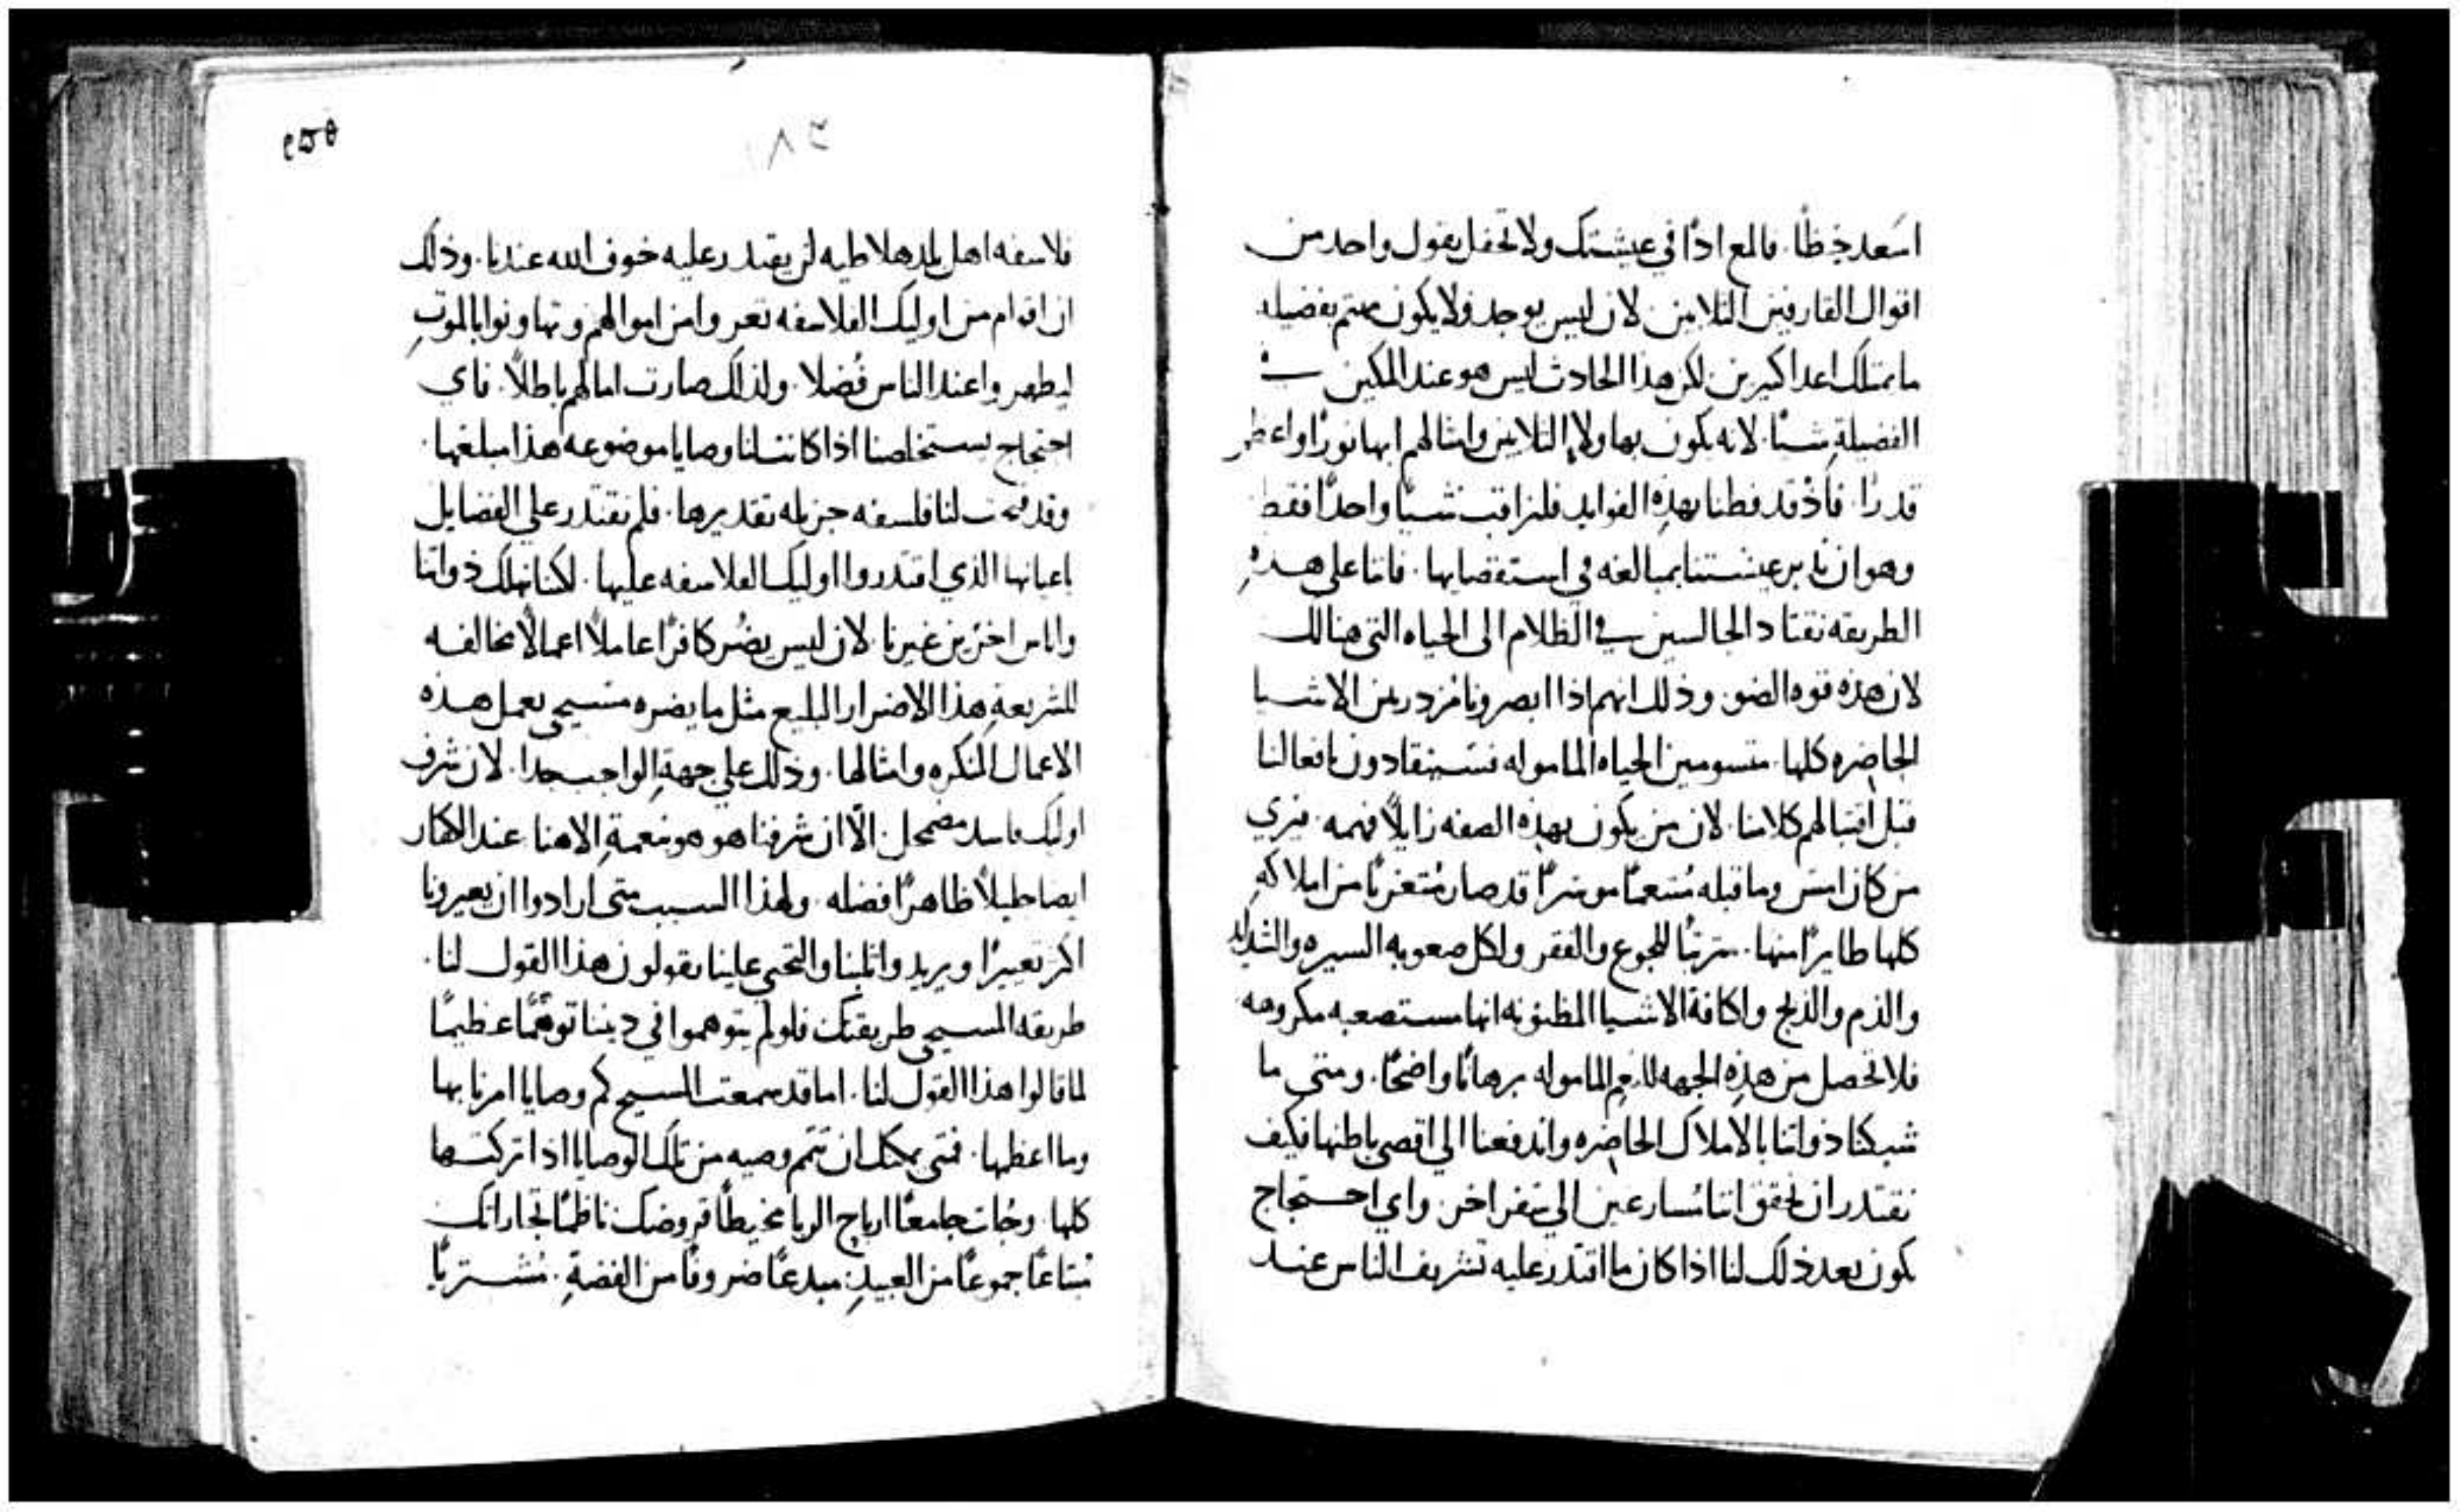 اسعد حظا. فالمع اذا في عيشتك ولا تحفل بقول واحد من
اقوال القارفين الثلابين. لان ليس يوجد ولا يكون مهتم بفضيله
ما يمتلك اعدا كثيرين. لكن هذا الحادث ليس هو عند المكين في
الفضيلة شيئا. لانه يكون بهاولا الثلابين وامثالهم ابها نورا واعظم
قدرا. فاذ قد فطنا بهذه الفوايد فلنراقب شيئا واحدا فقط
وهو ان ندبر عيشتنا بمبالغه في استقصايها. فاننا على هذه
الطريقه نقتاد الجالسين في الظلام الى الحياه التي هنالك
لان هذه قوه الضو. وذلك انهم اذا ابصرونا مزدرين الاشيا
الحاضره كلها. متسومين الحياه الماموله فسينقادون بافعالنا
قبل اقتبالهم كلامنا. لان من يكون بهذه الصفه زايلا فهمه. فيري
من كان امس وما قبله متنعما موسرا قد صار متعريا من املاكه
كلها طايرا منها. مترتبا للجوع والفقر ولكل صعوبه السيره والشدايد
والذم والذبح ولكافة الاشيا المظنونه انها مستصعبه مكروهه
فلا تحصل من هذه الجهه للنعم الماموله برهانا واضحا. ومتى ما
شبكنا ذواتنا بالاملاك الحاضره واندفعنا الي اقصي باطنها فكيف
نقتدر ان نحقق اننا مسارعين الي مقر اخر. واي احتجاج
يكون بعد ذلك لنا اذا كان ما اقتدر عليه تشريف الناس عند
١٨٢
فلاسفه اهل المدهلاطيه لن يقتدر عليه خوف الله عندنا. وذلك
ان اقوام من اوليك الفلاسفه تعروا من اموالهم وتهاونوا بالموت
ليظهروا عند الناس فضلا. ولذلك صارت امالهم باطلا. فاي
احتجاج يستخلصنا اذا كانت لنا وصايا موضوعه هذا مبلغها.
وقد فتحت لنا فلسفه جزيله تقديرها. فلم نقتدر على الفضايل
باعيانها الذي اقتدروا اوليك الفلاسفه عليها. لكنا نهلك ذواتنا
واناس اخرين غيرنا. لان ليس يضر كافرا عاملا اعمالا مخالفه
للشريعة هذا الاضرار البليغ مثل ما يضره مسيحي يعمل هذه
الاعمال المنكره وامثالها. وذلك علي جهة الواجب جدا. لان شرف
اوليك فاسد مضمحل. الا ان شرفنا هو هو نعمة الاهنا عند الكفار
ايضا جليلا ظاهرا فضله. ولهذا السبب متى ارادوا ان يعيرونا
اكثر تعييرا ويريدوا ثلبنا والتجني علينا يقولون هذا القول لنا.
طريقه المسيحي طريقتك فلو لم يتوهموا في ديننا توهما عظيما
لما قالوا هذا القول لنا. اما قد سمعت المسيح كم وصايا امرنا بها
وما اعظمها. فمتى يمكنك ان تتم وصيه من تلك الوصايا اذا تركتها
كلها. وجات جامعا ارباح الربا مخيطا قروضك ناظما تجاراتك
مبتاعا جموعا من العبيد. مبدعا ضروفا من الفضة. مشتريا